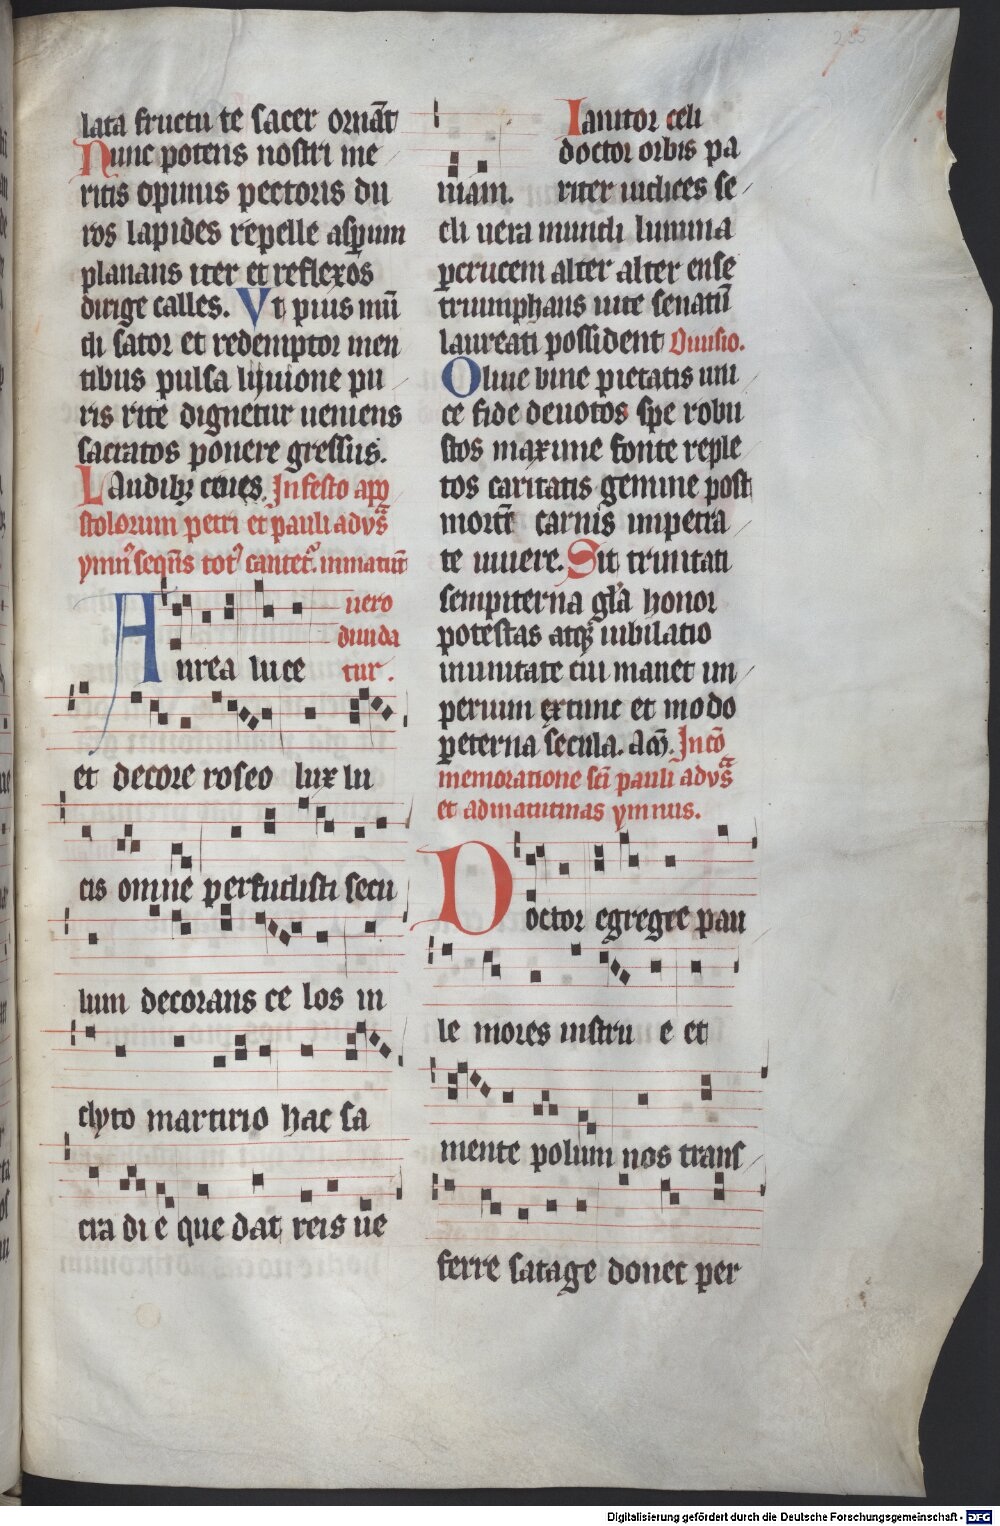 235
lata fructu te sacer ornāt
Nunc potens nostri me
ritis opimis pectoris du
ros lapides repelle asꝑum
planans iter et reflexos
dirige calles. Vt pius mū
di sator et redemptor men
tibus pulsa liuione pu
ris rite dignetur ueniens
sacratos ponere gressus.
Laudibꝰ ciues. In festo apo
stolorum petri et pauli ad vs̄
ymn᷒ seqn̄s tot᷒ cantet᷒. in matut̄
uero
diuida
Aurea luce tur.
et decore roseo lux lu
cis omne perfudisti secu
lum decorans ce los in
clyto martirio hac sa
cra di e que dat reis ue
niam.
Ianitor celi
doctor orbis pa
riter iudices se
cli uera mundi lumina
ꝑ crucem alter alter ense
triumphans uite senatū
laureati possident Diuisio.
Oliue bine pietatis uni
ce fide deuotos spe robu
stos maxime fonte reple
tos caritatis gemine post
mortē carnis impetra
te uiuere. Sit trinitati
sempiterna gl̄a honor
potestas atqꝫ iubilatio
in unitate cui manet im
perium ex tunc et modo
ꝑ eterna secula. am̄. In cō
memoratione sci̅ pauli ad vs̄
et ad matutinas ymnus.
Doctor egregee pau
le mores instru e et
mente polum nos trans
ferre satage donec per
Digitalisierung gefördert durch die Deutsche Forschungsgemeinschaft - DFG